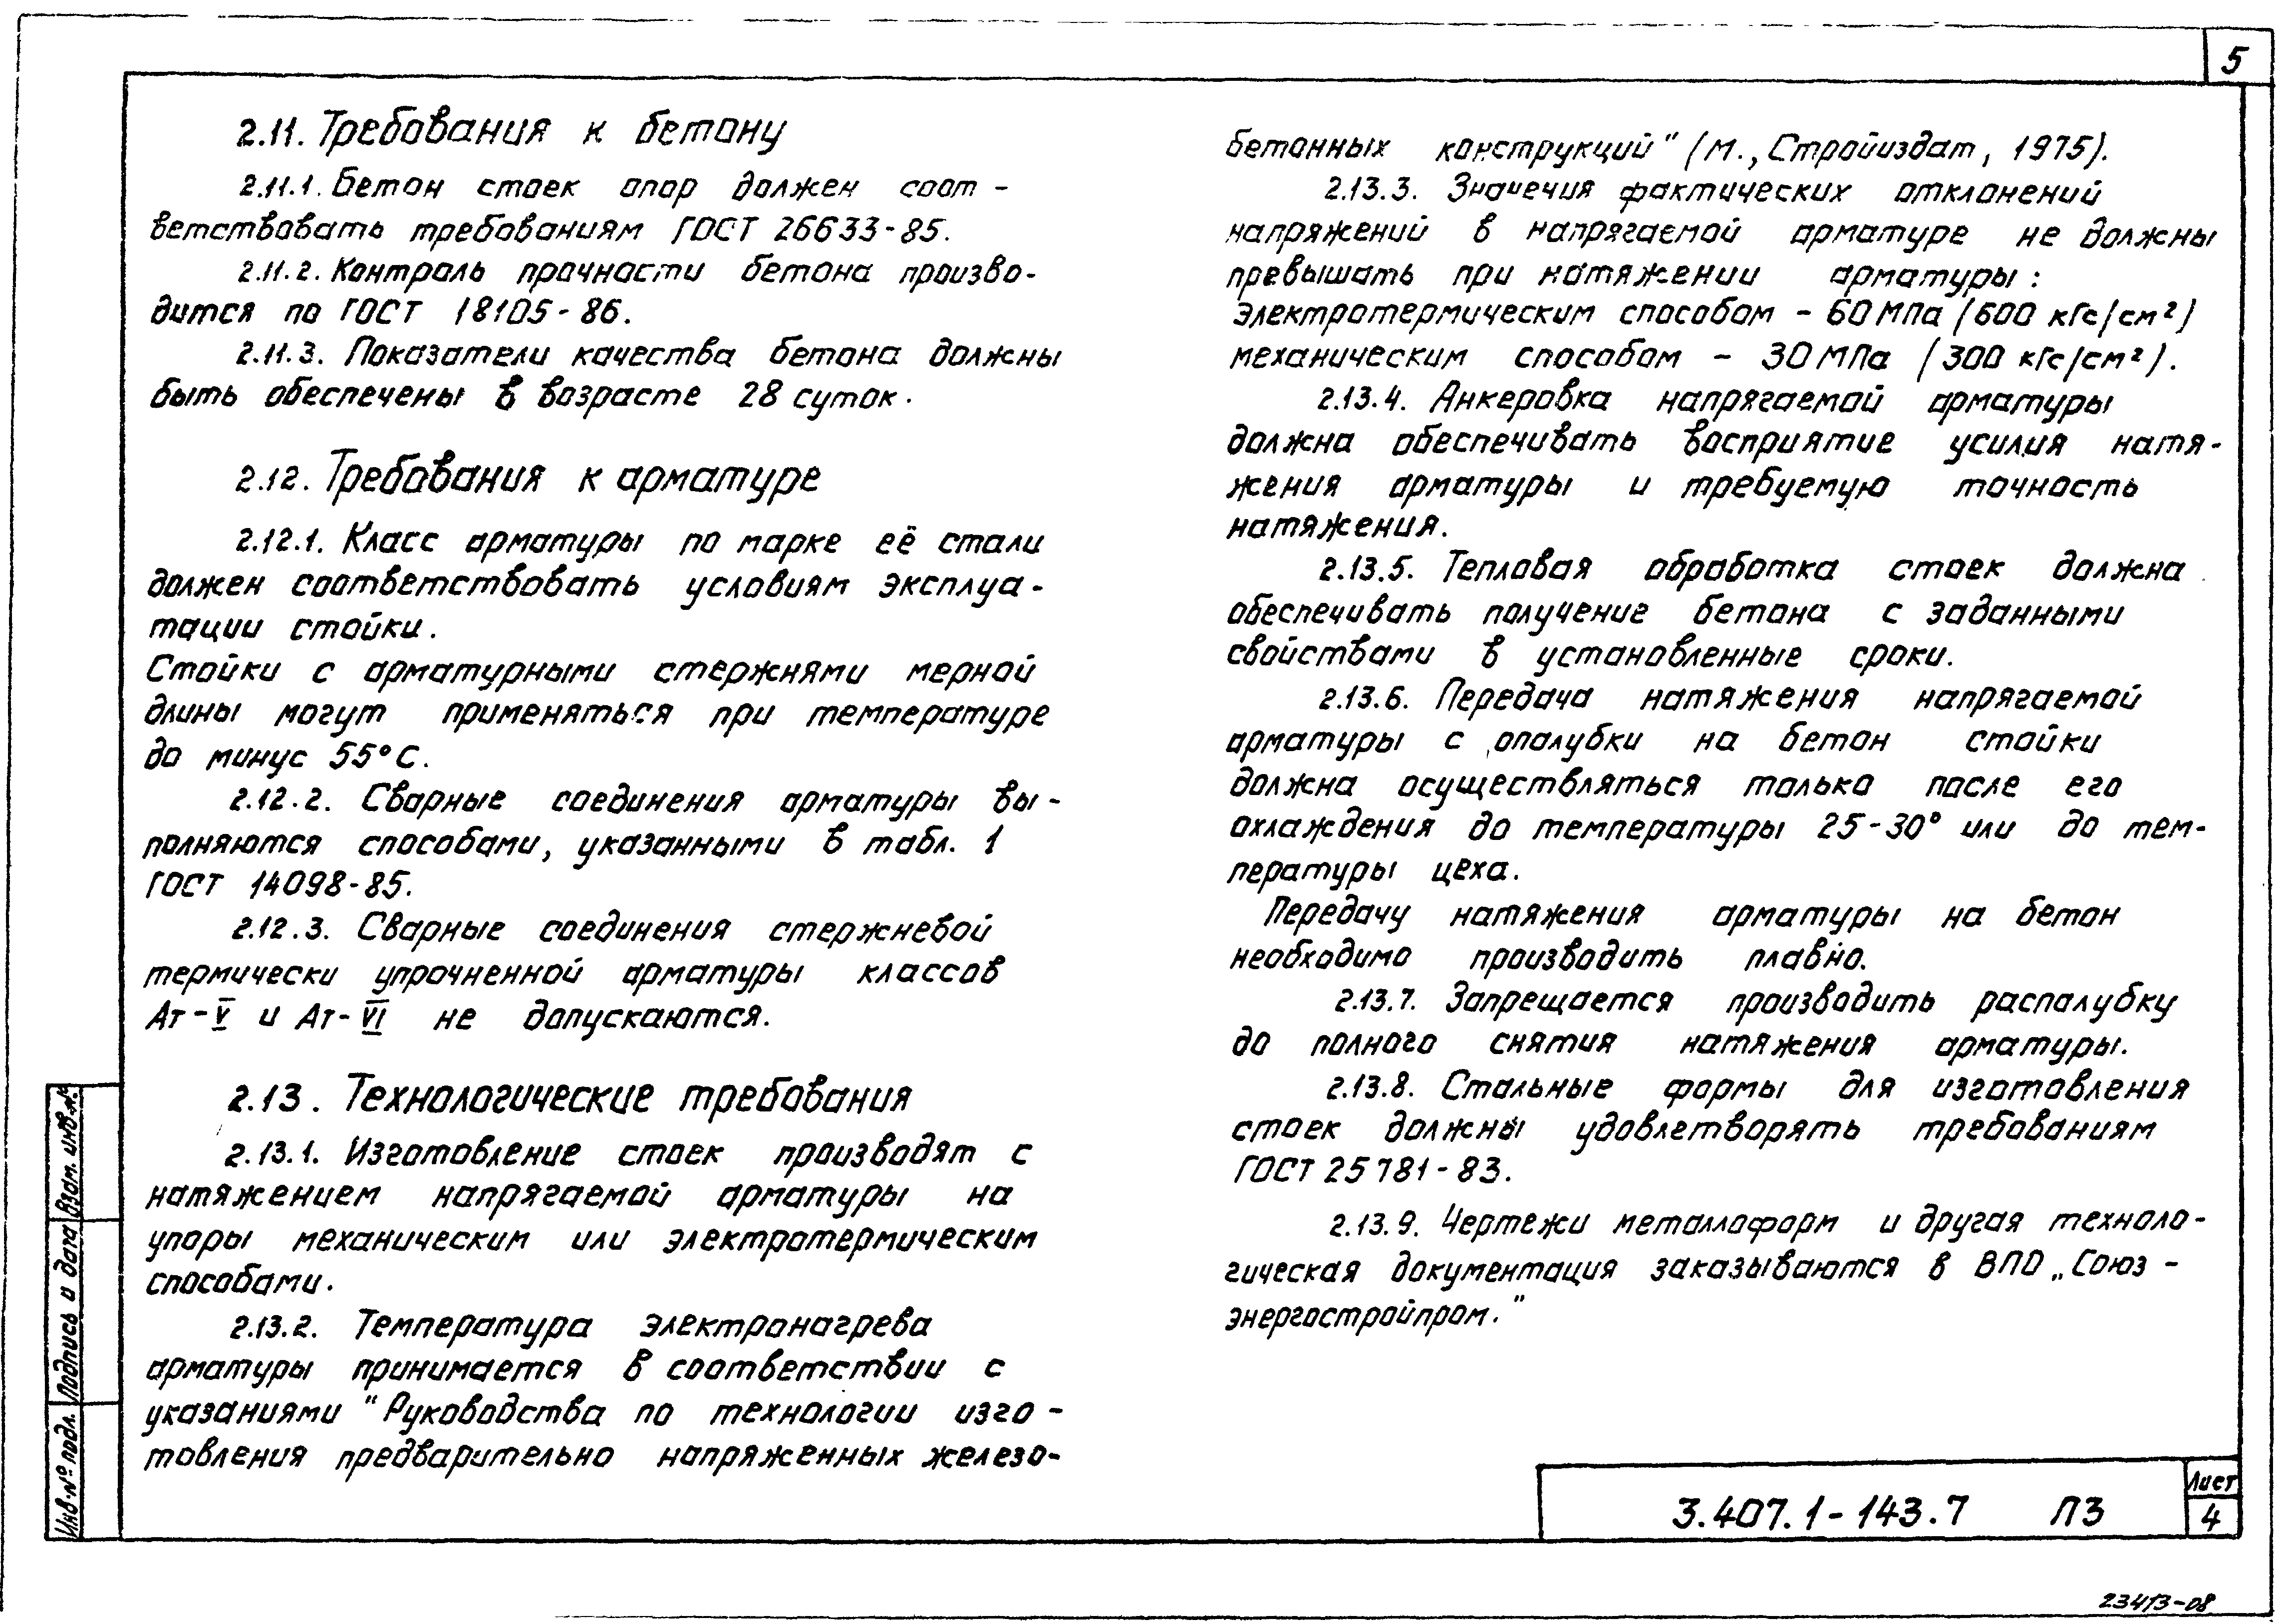 5
2.11. Требования к бетону
2.11.1. Бетон стоек опор должен соот-
ветствовать требованиям ГОСТ 26633-85.
2.11.2. Контроль прочности бетона произво-
дится по ГОСТ 18105-86.
2.11.3. Показатели качества бетона должны
быть обеспечены в возрасте 28 суток.
2.12. Требования к арматуре
2.12.1. Класс арматуры по марке её стали
должен соответствовать условиям эксплуа-
тации стойки.
Стойки с арматурными стержнями мерной
длины могут применяться при температуре
до минус 55°С.
2.12.2. Сварные соединения арматуры вы-
полняются способами, указанными в табл. 1
ГОСТ 14098-85.
2.12.3. Сварные соединения стержневой
термически упрочненной арматуры классов
Ат-V и Ат-VI не допускаются.
2.13. Технологические требования
2.13.1. Изготовление стоек производят с
натяжением напрягаемой арматуры на
упоры механическим или электротермическим
способами.
2.13.2. Температура электронагрева
арматуры принимается в соответствии с
указаниями "Руководства по технологии изго-
товления предварительно напряженных железо-
бетонных конструкций" (М., Стройиздат, 1975).
2.13.3. Значечия фактических отклонений
напряжений в напрягаемой арматуре не должны
превышать при натяжении арматуры:
электротермическим способом - 60 МПа (600 кГс/см²)
механическим способом - 30 МПа (300 кГс/см²).
2.13.4. Анкеровка напрягаемой арматуры
должна обеспечивать восприятие усилия натя-
жения арматуры и требуемую точность
натяжения.
2.13.5. Тепловая обработка стоек должна
обеспечивать получение бетона с заданными
свойствами в установленные сроки.
2.13.6. Передача натяжения напрягаемой
арматуры с опалубки на бетон стойки
должна осуществляться только после его
охлаждения до температуры 25-30° или до тем-
пературы цеха.
Передачу натяжения арматуры на бетон
необходимо производить плавно.
2.13.7. Запрещается производить распалубку
до полного снятия натяжения арматуры.
2.13.8. Стальные формы для изготовления
стоек должны удовлетворять требованиям
ГОСТ 25781-83.
2.13.9. Чертежи металлоформ и другая техноло-
гическая документация заказываются в ВПО „Союз-
энергостройпром."
Инв.№ подл. Подпись и дата Взам. инв.№
3.407.1-143.7 ПЗ
Лист
4
23413-08